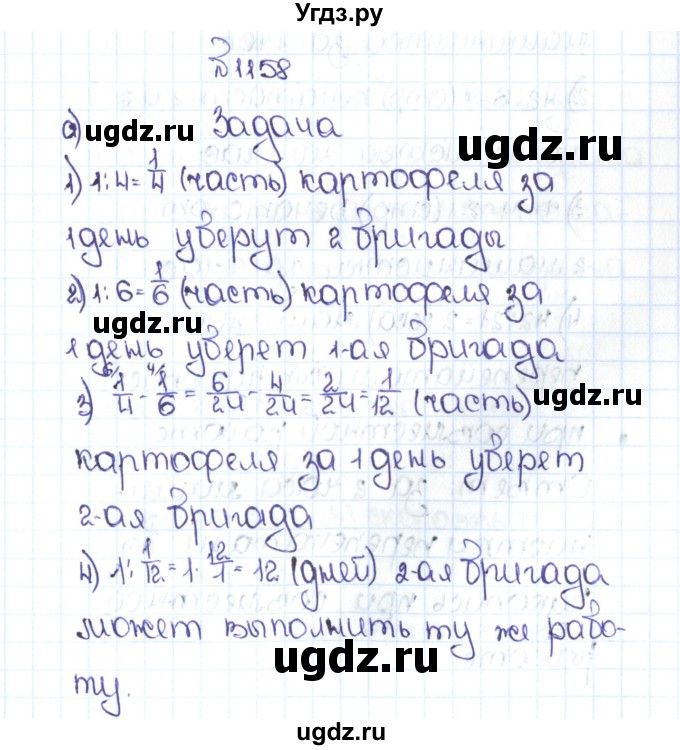 Угдз.ру
№1158
а) ugdz.ru Задача ugdz.ru
1) 1:4=1/4 (часть) картофеля за
1 день уберут 2 бригады
2) 1:6=1/6 (часть) картофеля за
ugdz.ru
1 день уберет 1-ая бригада
3) 6/1/4 - 4/1/6 = 6/24 - 4/24 = 2/24 = 1/12 (часть) ugdz.ru
картофеля за 1 день уберет
2-ая бригада
4) 1:1/12=1·12/1=12 (дней) 2-ая бригада
может выполнить ту же рабо-
ugdz.ru ugdz.ru
ту.
ugdz.ru